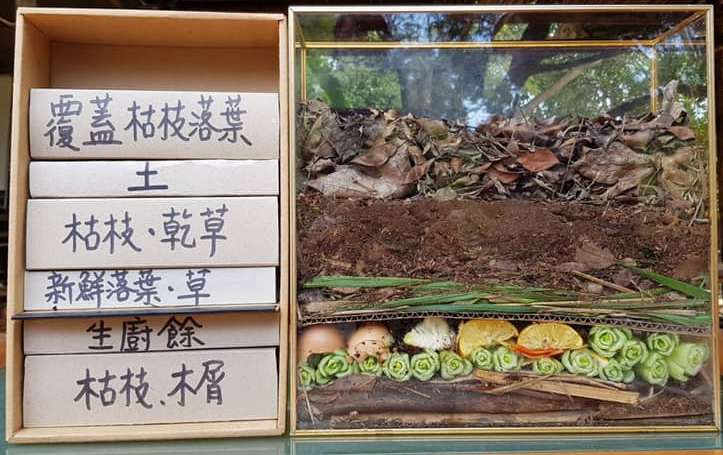 覆蓋枯枝落葉
土
枯枝、乾草
新鮮落葉、草
生廚餘
枯枝、木屑